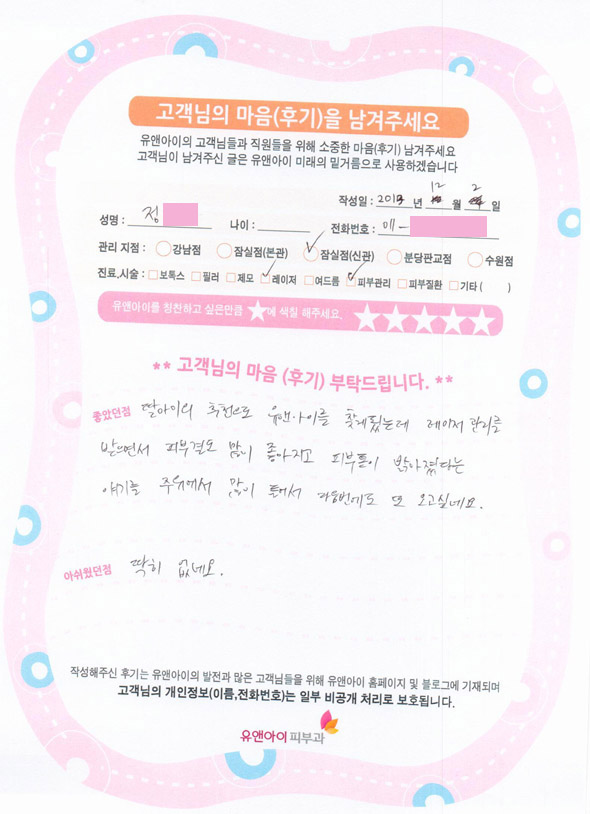 고객님의 마음(후기)을 남겨주세요
유앤아이의 고객님들과 직원들을 위해 소중한 마음(후기) 남겨주세요
고객님이 남겨주신 글은 유앤아이 미래의 밑거름으로 사용하겠습니다
작성일 : 2013 년 12 월 2 일
성명 : 정 나이 : 전화번호 :
관리 지점 : 강남점 잠실점(본관) 잠실점(신관) 분당판교점 수원점
진료,시술 : 보톡스 필러 제모 레이저 여드름 피부관리 피부질환 기타 ( )
유앤아이를 칭찬하고 싶은만큼 ★에 색칠 해주세요. ★★★★★
** 고객님의 마음 (후기) 부탁드립니다. **
좋았던점 딸아이의 추천으로 유앤아이를 찾게됬는데 레이저 관리를
받으면서 피부결도 많이 좋아지고 피부톤이 밝아졌다는
얘기를 주위에서 많이 들어서 다음번에도 또 오고싶네요.
아쉬웠던점 딱히 없네요.
작성해주신 후기는 유앤아이의 발전과 많은 고객님들을 위해 유앤아이 홈페이지 및 블로그에 기재되며
고객님의 개인정보(이름,전화번호)는 일부 비공개 처리로 보호됩니다.
유앤아이피부과